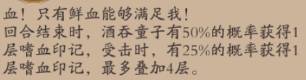 血！只有鲜血能够满足我！
回合结束时，酒吞童子有50%的概率获得1
层嗜血印记，受击时，有25%的概率获得1
层嗜血印记，最多叠加4层。